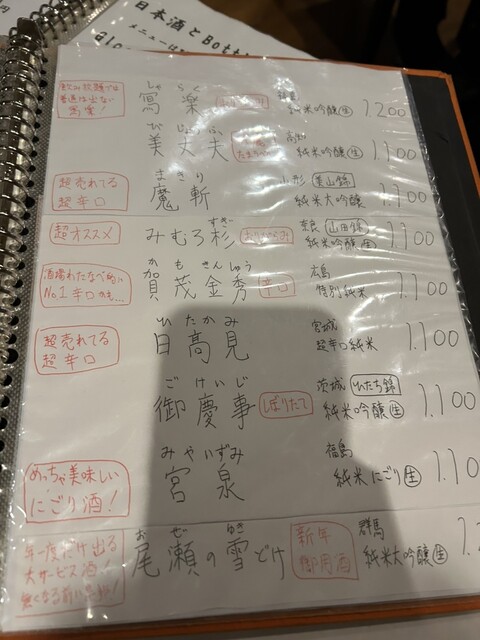 日本酒とBott
メニューは
alo
飲み放題では
普段は出ない
写楽!
しゃ らく
寫楽
おりがらみ
純米吟醸 生
1.200
び じょう ふ
美丈夫
高知
純米吟醸 生
1.100
超売れてる
超辛口
ま きり
魔斬
山形 美山錦
純米大吟醸
1.100
超オススメ
みむろ杉
すぎ
おりがらみ
奈良 山田錦
純米吟醸 生
1.100
酒場わたなべ的
No.1 辛口かも…
か も きんしゅう
賀茂金秀
辛口
広島
特別純米
1.100
超売れてる
超辛口
ひ たか み
日髙見
宮城
超辛口純米
1.100
ご けい じ
御慶事
しぼりたて
茨城 ひたち錦
純米吟醸 生
1.100
めっちゃ美味しい
にごり酒!
みや いずみ
宮泉
福島
純米にごり 生
1.10
年一度だけ出る
大サービス酒!
お ぜ ゆき
尾瀬の雪どけ
新年
御用酒
群馬
純米大吟醸 生